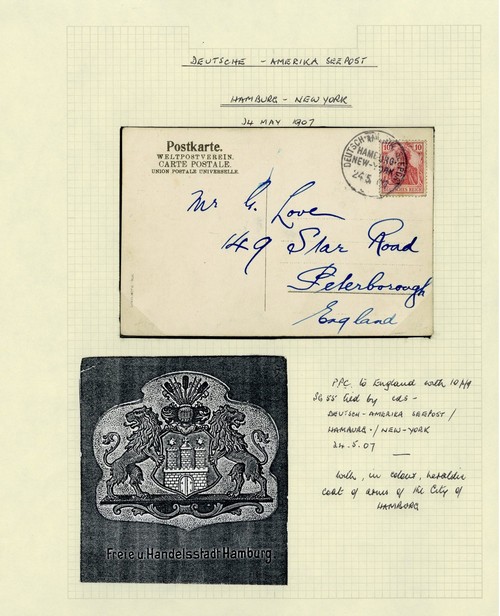 DEUTSCHE - AMERIKA SEEPOST
HAMBURG - NEW YORK
24 MAY 1907
Postkarte.
WELTPOSTVEREIN.
CARTE POSTALE.
UNION POSTALE UNIVERSELLE.
HAMBURG-
NEW-YORK
24.5.07
10 10
Mr G. Love
149 Star Road
Peterborough
England
PPC to England with 10pfg
SG 55 tied by cds -
DEUTSCH-AMERIKA SEEPOST/
HAMBURG-/NEW-YORK
24.5.07
With, in colour, heraldic
coat of arms of the City of
HAMBURG
Freie u. Handelsstadt Hamburg